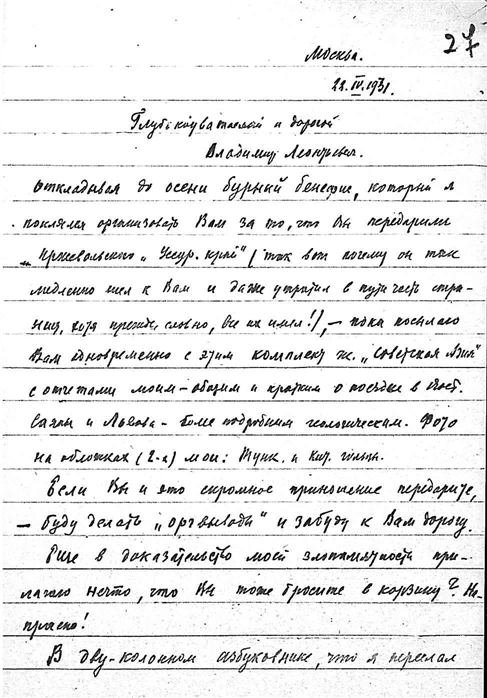 27
Москва.
22.IV.1931.
Глубокоуважаемый и дорогой
Владимир Леонтьевич.
Откладывая до осени бурный бенефис, который я
поклялся организовать Вам за то, что Вы передарили
Пржевальского „Уссур. край" (так вот почему он так
медленно шел к Вам и даже утратил в пути часть стра-
ниц, хотя прежде, словно, все их имел!), – пока посылаю
Вам одновременно с этим комплект ж. „Советская Азия"
с отчетами моим – общим и кратким о поездке в Вост.
Саяны и Львова – более подробным геологическим. Фото
на обложках (2-а) мои: Тунк. и Кит. гольцы.
Если Вы и это скромное приношение передарите,
– буду делать „оргвыводы" и забуду к Вам дорогу.
Еще в доказательство моей злопамятности при-
лагаю нечто, что Вы тоже бросите в корзину? На-
прасно!
В дву-колонном азбуковнике, что я переслал